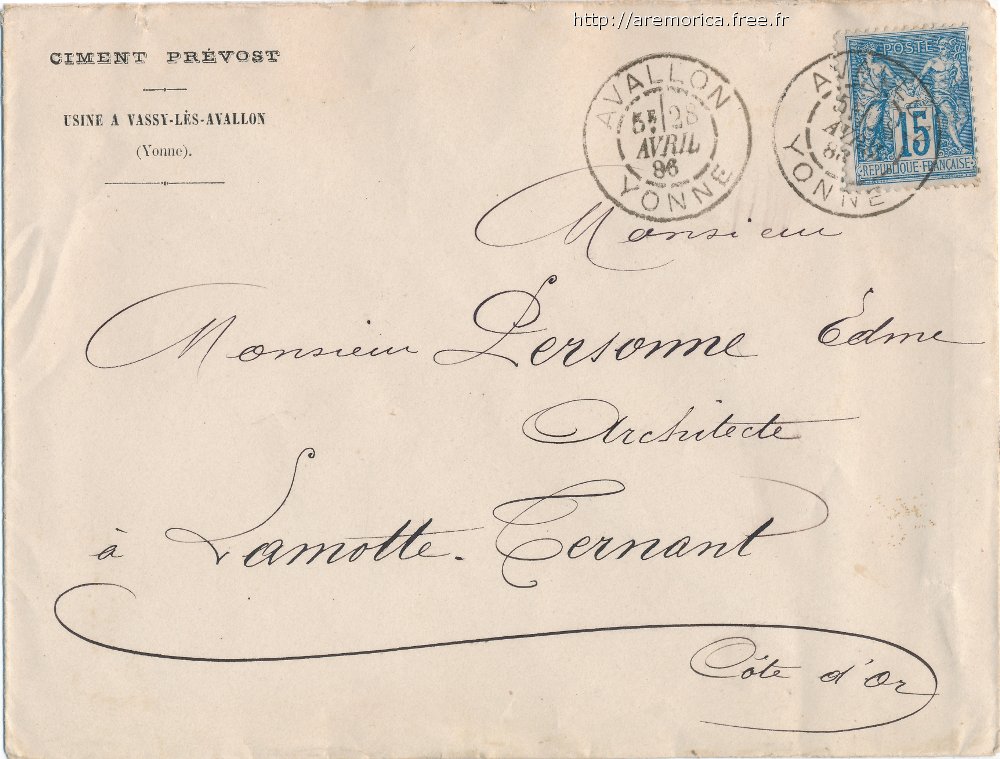 http://aremorica.free.fr
CIMENT PRÉVOST
USINE A VASSY-LÈS-AVALLON
(Yonne).
AVALLON
5E 28
AVRIL
86
YONNE
AV
5
AV
86
YONNE
POSTE
15
REPUBLIQUE FRANÇAISE
Monsieur
Monsieur Personne Edme
Architecte
à Lamotte-Ternant
Côte d'Or